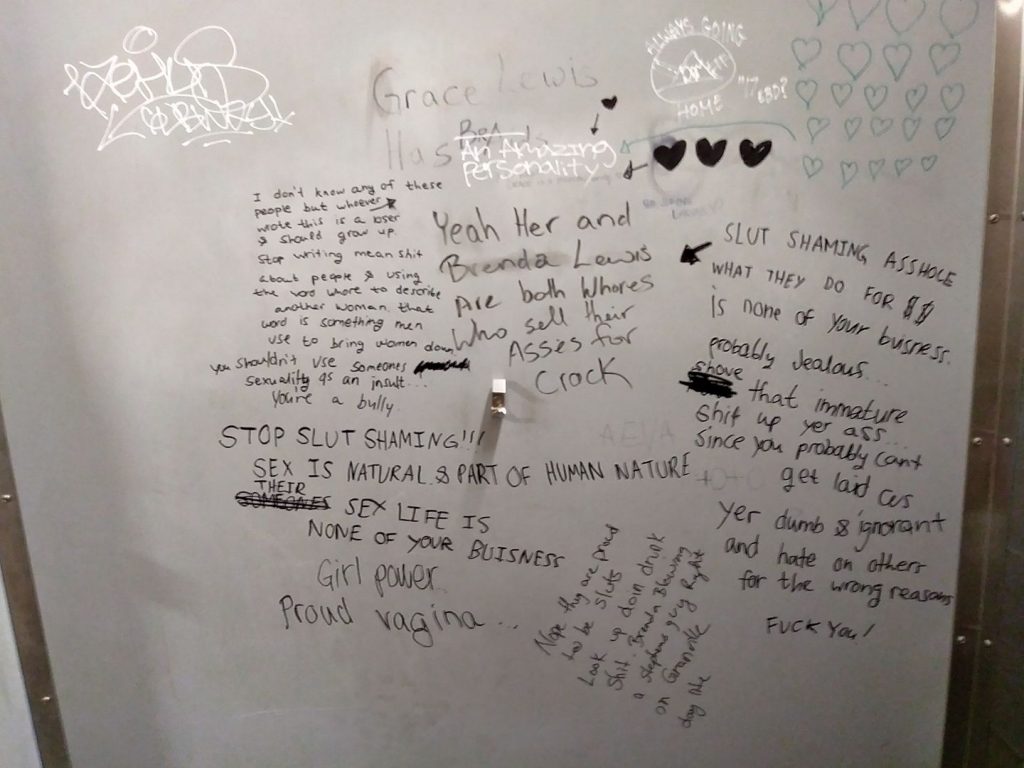 ALWAYS GOING
HOME
Grace Lewis
Has
An Amazing
Personality
I don't know any of these
people but whoever
wrote this is a loser
& should grow up.
Stop writing mean shit
about people & using
the word whore to describe
another woman. that
word is something men
use to bring women down
you shouldn't use someones
sexuality as an insult...
You're a bully.
Yeah Her and
Brenda Lewis
Are both Whores
Who sell their
Asses for
Crack
SLUT SHAMING ASSHOLE
WHAT THEY DO FOR $$
is none of your buisness.
probably Jealous...
shove that immature
shit up yer ass...
since you probably cant
get laid cus
yer dumb & ignorant
and hate on others
for the wrong reasons
FUCK YOU!
AEVA
STOP SLUT SHAMING!!!
SEX IS NATURAL & PART OF HUMAN NATURE
THEIR
SEX LIFE IS
NONE OF YOUR BUISNESS
Girl power
Proud vagina...
Nope they are proud
too be sluts
Look up doin drunk
Shit. Brenda Blowing
a stephens guy Right
on Granville
day lite